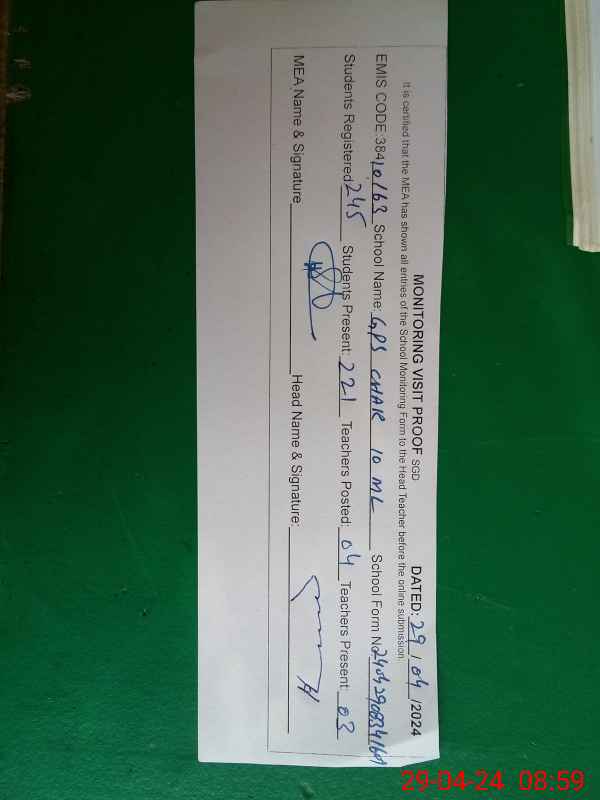 MONITORING VISIT PROOF SGD DATED: 29 / 04 /2024
It is certified that the MEA has shown all entries of the School Monitoring Form to the Head Teacher before the online submission.
EMIS CODE:38410163 School Name: GPS CHAK 10 ML School Form No
Students Registered 245 Students Present: 221 Teachers Posted: 04 Teachers Present: 03
MEA Name & Signature Head Name & Signature:
29-04-24 08:59